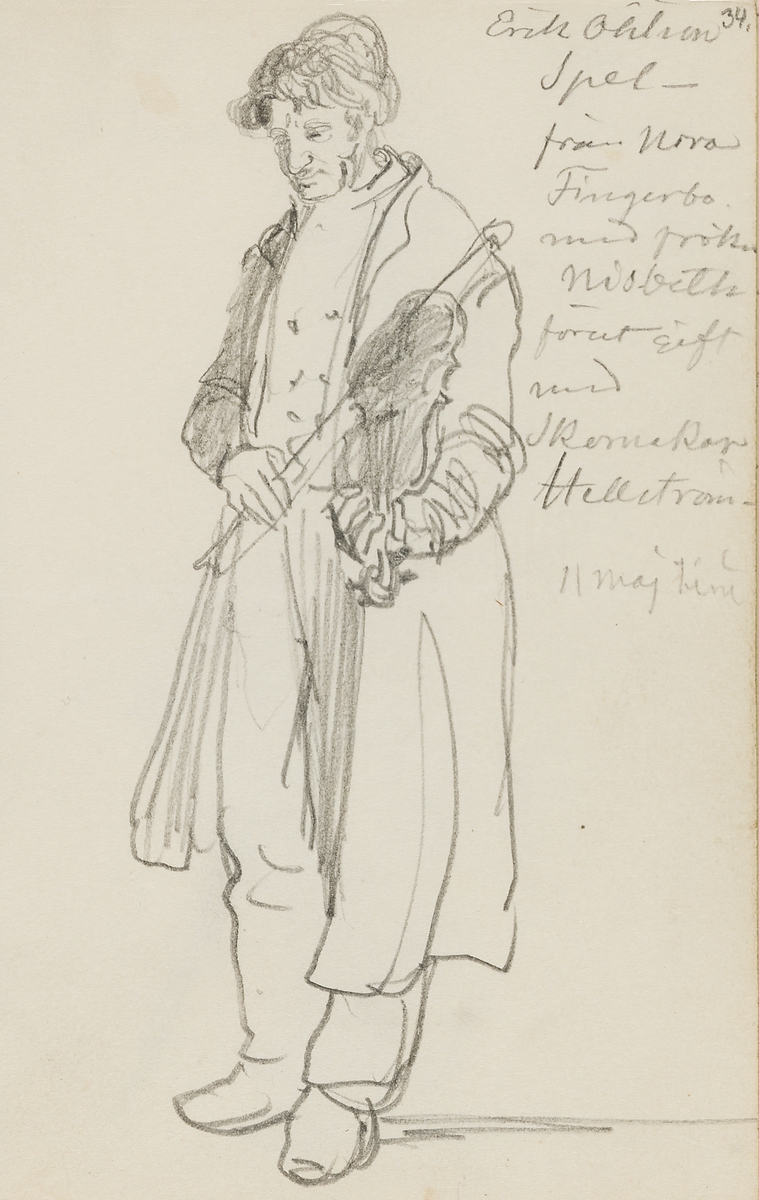 34.
Erik Ohlson
Spel-
från Nora
Fingerbo.
med fröken
Nisbeth
förut gift
med
Skomakar
Hellström-
11 maj